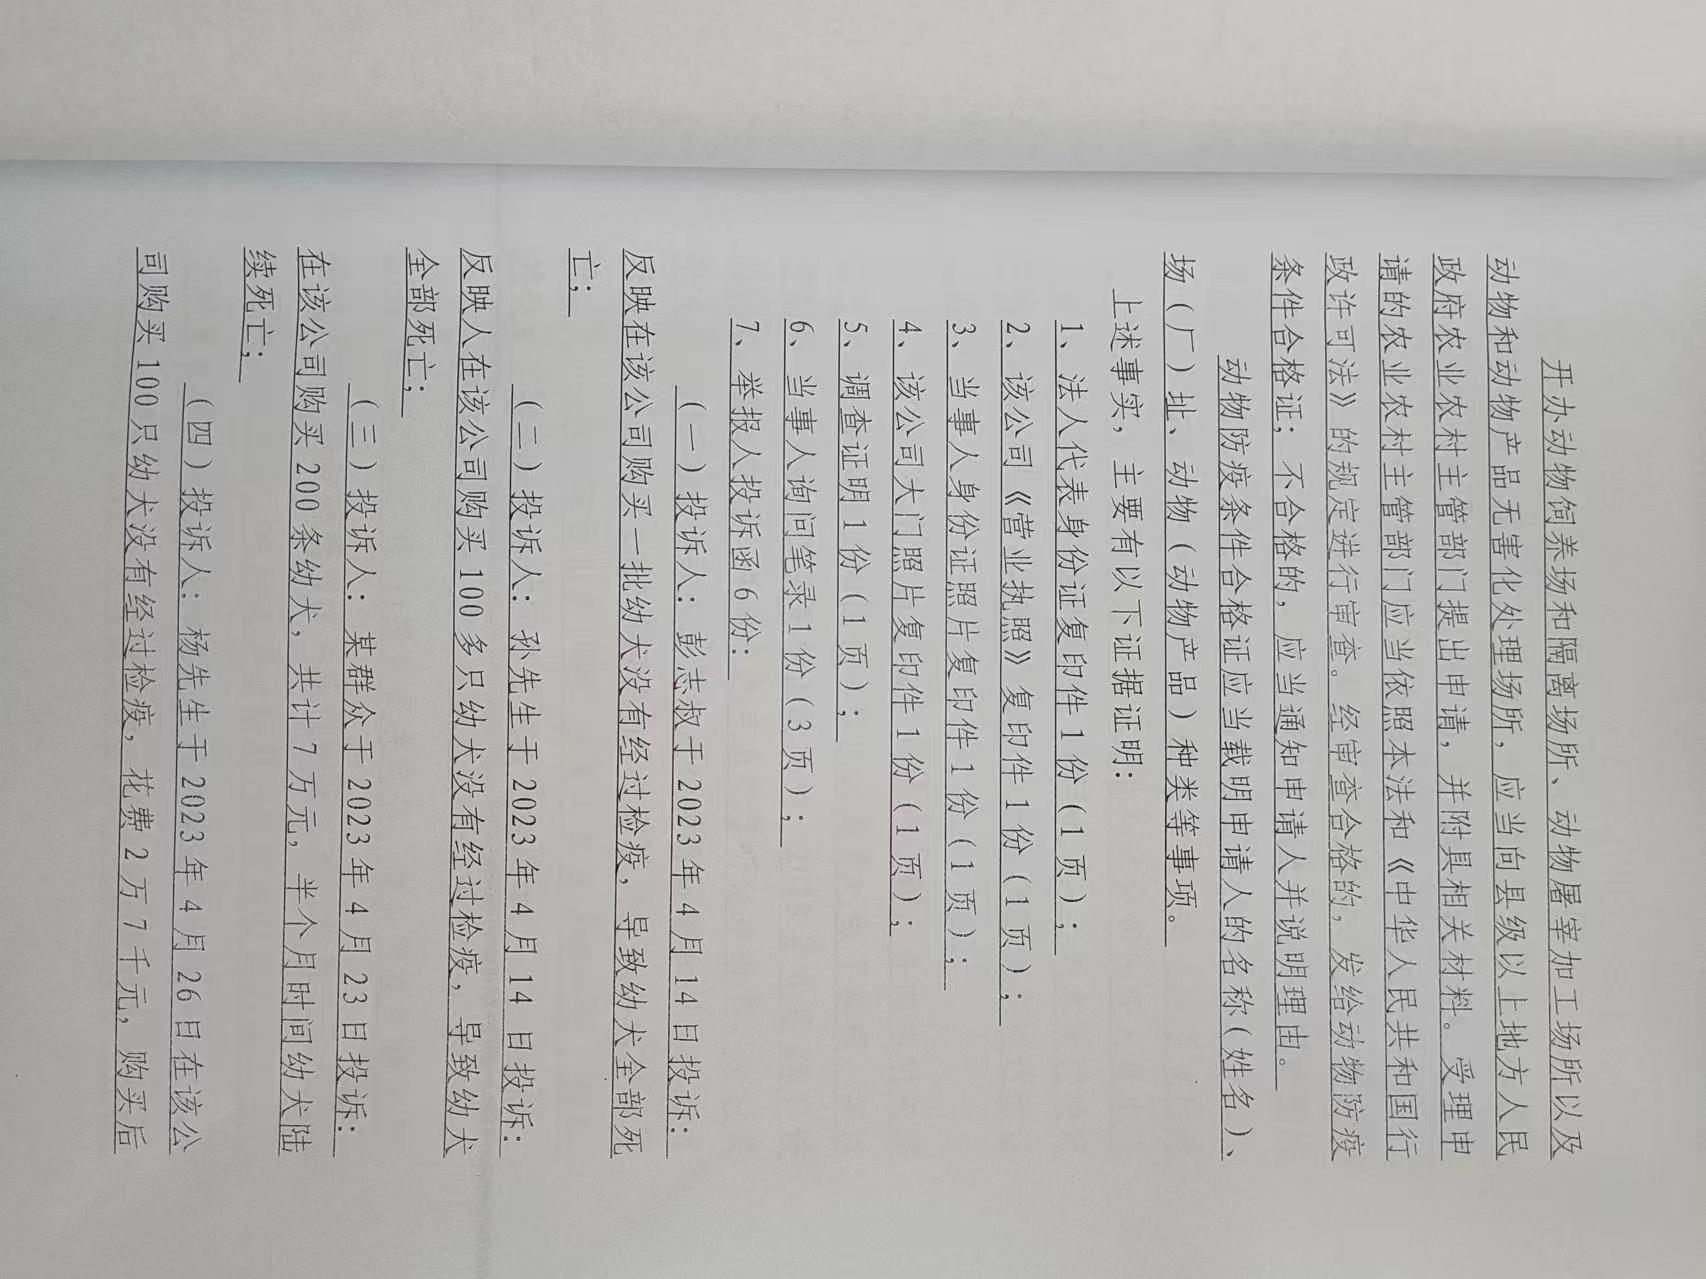 开办动物饲养场和隔离场所、动物屠宰加工场所以及
动物和动物产品无害化处理场所，应当向县级以上地方人民
政府农业农村主管部门提出申请，并附具相关材料。受理申
请的农业农村主管部门应当依照本法和《中华人民共和国行
政许可法》的规定进行审查。经审查合格的，发给动物防疫
条件合格证；不合格的，应当通知申请人并说明理由。
动物防疫条件合格证应当载明申请人的名称（姓名）、
场（厂）址、动物（动物产品）种类等事项。
上述事实，主要有以下证据证明：
1、法人代表身份证复印件1份（1页）；
2、该公司《营业执照》复印件1份（1页）；
3、当事人身份证照片复印件1份（1页）；
4、该公司大门照片复印件1份（1页）；
5、调查证明1份（1页）；
6、当事人询问笔录1份（3页）；
7、举报人投诉函6份：
（一）投诉人：彭志叔于2023年4月14日投诉：
反映在该公司购买一批幼犬没有经过检疫，导致幼犬全部死
亡；
（二）投诉人：孙先生于2023年4月14日投诉：
反映人在该公司购买100多只幼犬没有经过检疫，导致幼犬
全部死亡；
（三）投诉人：某群众于2023年4月23日投诉：
在该公司购买200条幼犬，共计7万元，半个月时间幼犬陆
续死亡；
（四）投诉人：杨先生于2023年4月26日在该公
司购买100只幼犬没有经过检疫，花费2万7千元，购买后